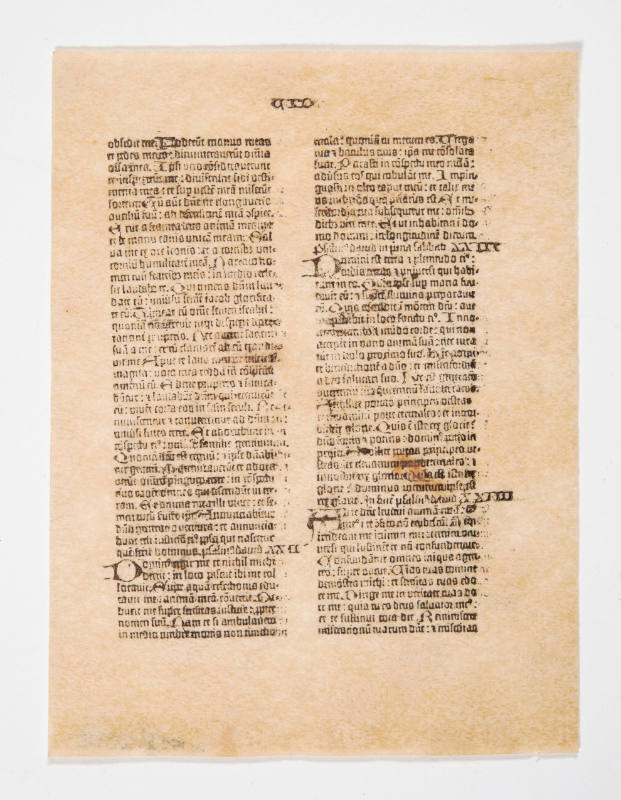 obsedit me. Foderūt manus meas
et pedes meos: dinumeraverūt omīa
ossa mea. Ipsi vero cōsideraverunt
et inspexerūt me: diviserunt sibi vesti-
menta mea: et sup vestē meā miserūt
sortem. Tu aūt dn̄e ne elongaveris
auxiliū tuū: ad defensionē meā ɔspice.
Erue a framea deus animā meam:
et de manu canis unicā meam. Sal
va me ex ore leonis: et a cornibꝫ uni-
cornuū humilitatē meā. Narrabo no-
men tuū fratribꝫ meis: in medio eccle-
sie laudabo te. Qui timetis dn̄m lau-
date eū: universū semē iacob glorificate
eū. Timeat eū om̄e semen israhel:
quoniā nō sprevit neqꝫ despexit depre-
cationē pauperis. Nec avertit faciem
suā a me: et cū clamarē ad eū exaudi-
vit me. Apud te laus mea in ecclesia
magna: vota mea reddā in ɔspectu
timentiū eū. Edent pauperes et satura-
būtur: et laudabūt dn̄m qui requirūt
eū: vivēt corda eoꝝ in seculū seculi.
Reminiscentur et convertentur ad dn̄m:
universi fines terre. Et adorabunt in
ɔspectu eiꝰ: universe familie gentium.
Quoniā dn̄i est regnū: et ipse dn̄abit᷑
gentiū. Māducaverūt et adora-
verūt om̄es pingues terre: in ɔspectu
eius cadent omnes qui descendūt in ter-
ram. Et anima mea illi vivet: et se-
men meū serviet ipsi. Annunciabit᷑
dn̄o generatio ventura: et annuncia-
bunt celi iusticiā eiꝰ: pplo qui nascet᷑
quē fecit dominus. psalmꝰ david XXII
Dominus regit me et nichil michi
deerit: in loco pascue ibi me col-
locavit. Super aquā refectionis edu-
cavit me: animā meā ɔvertit. De-
duxit me super semitas iusticie: ppter
nomen suū. Nam et si ambulavero
in medio umbre mortis non timebo
mala: quoniā tu mecum es. Virga
tua et baculus tuus: ipsa me cōsolata
sunt. Parasti in ɔspectu meo mēsā:
adversus eos qui tribulāt me. Impin-
guasti in oleo caput meū: et calix me-
us inebrians quā preclarus est. Et mi-
sericordia tua subsequetur me: omībꝫ
diebꝫ vite mee. Et ut inhabitem ī do-
mo domini: in longitudinē dierum.
Psalmꝰ david in prima sabbati. XXIII
Domini est terra et plenitudo eiꝰ:
orbis terraꝝ et universi qui habi-
tant in eo. Quia ipse sup maria fun-
davit eū: et super flumina preparavit
eū. Quis ascendet ī mōtem dn̄i: aut
quis stabit in loco sancto eiꝰ. Inno-
cens manibꝫ et mūdo corde: qui non
accepit in vano animā suā: nec iura-
vit in dolo proximo suo. Hic accipiet
benedictionē a dn̄o: et misericordiā
a deo salutari suo. Hec est generatio
querentiū eū: querentiū faciē dei iacob.
Attollite portas principes vestras
et elevamini porte eternales: et introi-
bit rex glorie. Quis ē iste rex glorie?
dn̄s fortis et potens: dominꝰ potēs in
prelio. Attollite portas principes ve-
stras et elevamini porte eternales: et
introibit rex glorie. Quis est iste rex
glorie? dominus virtutum ipse est
rex glorie. In finē psalmꝰ david XXIIII
Ad te dn̄e levavi animā meā:
deus meꝰ in te confido nō erubescā.
Neqꝫ irrideant me inimici mei: etenim uni-
versi qui sustinēt te nō confundentur.
Confundant᷑ omnes iniqua agen-
tes: supervacue. Vias tuas domine
demōstra michi: et semitas tuas edo-
ce me. Dirige me in veritate tua et do-
ce me: quia tu es deus salvator meꝰ:
et te sustinui tota die. Reminiscere
miserationū tuarum dn̄e: et misericordiaꝝ